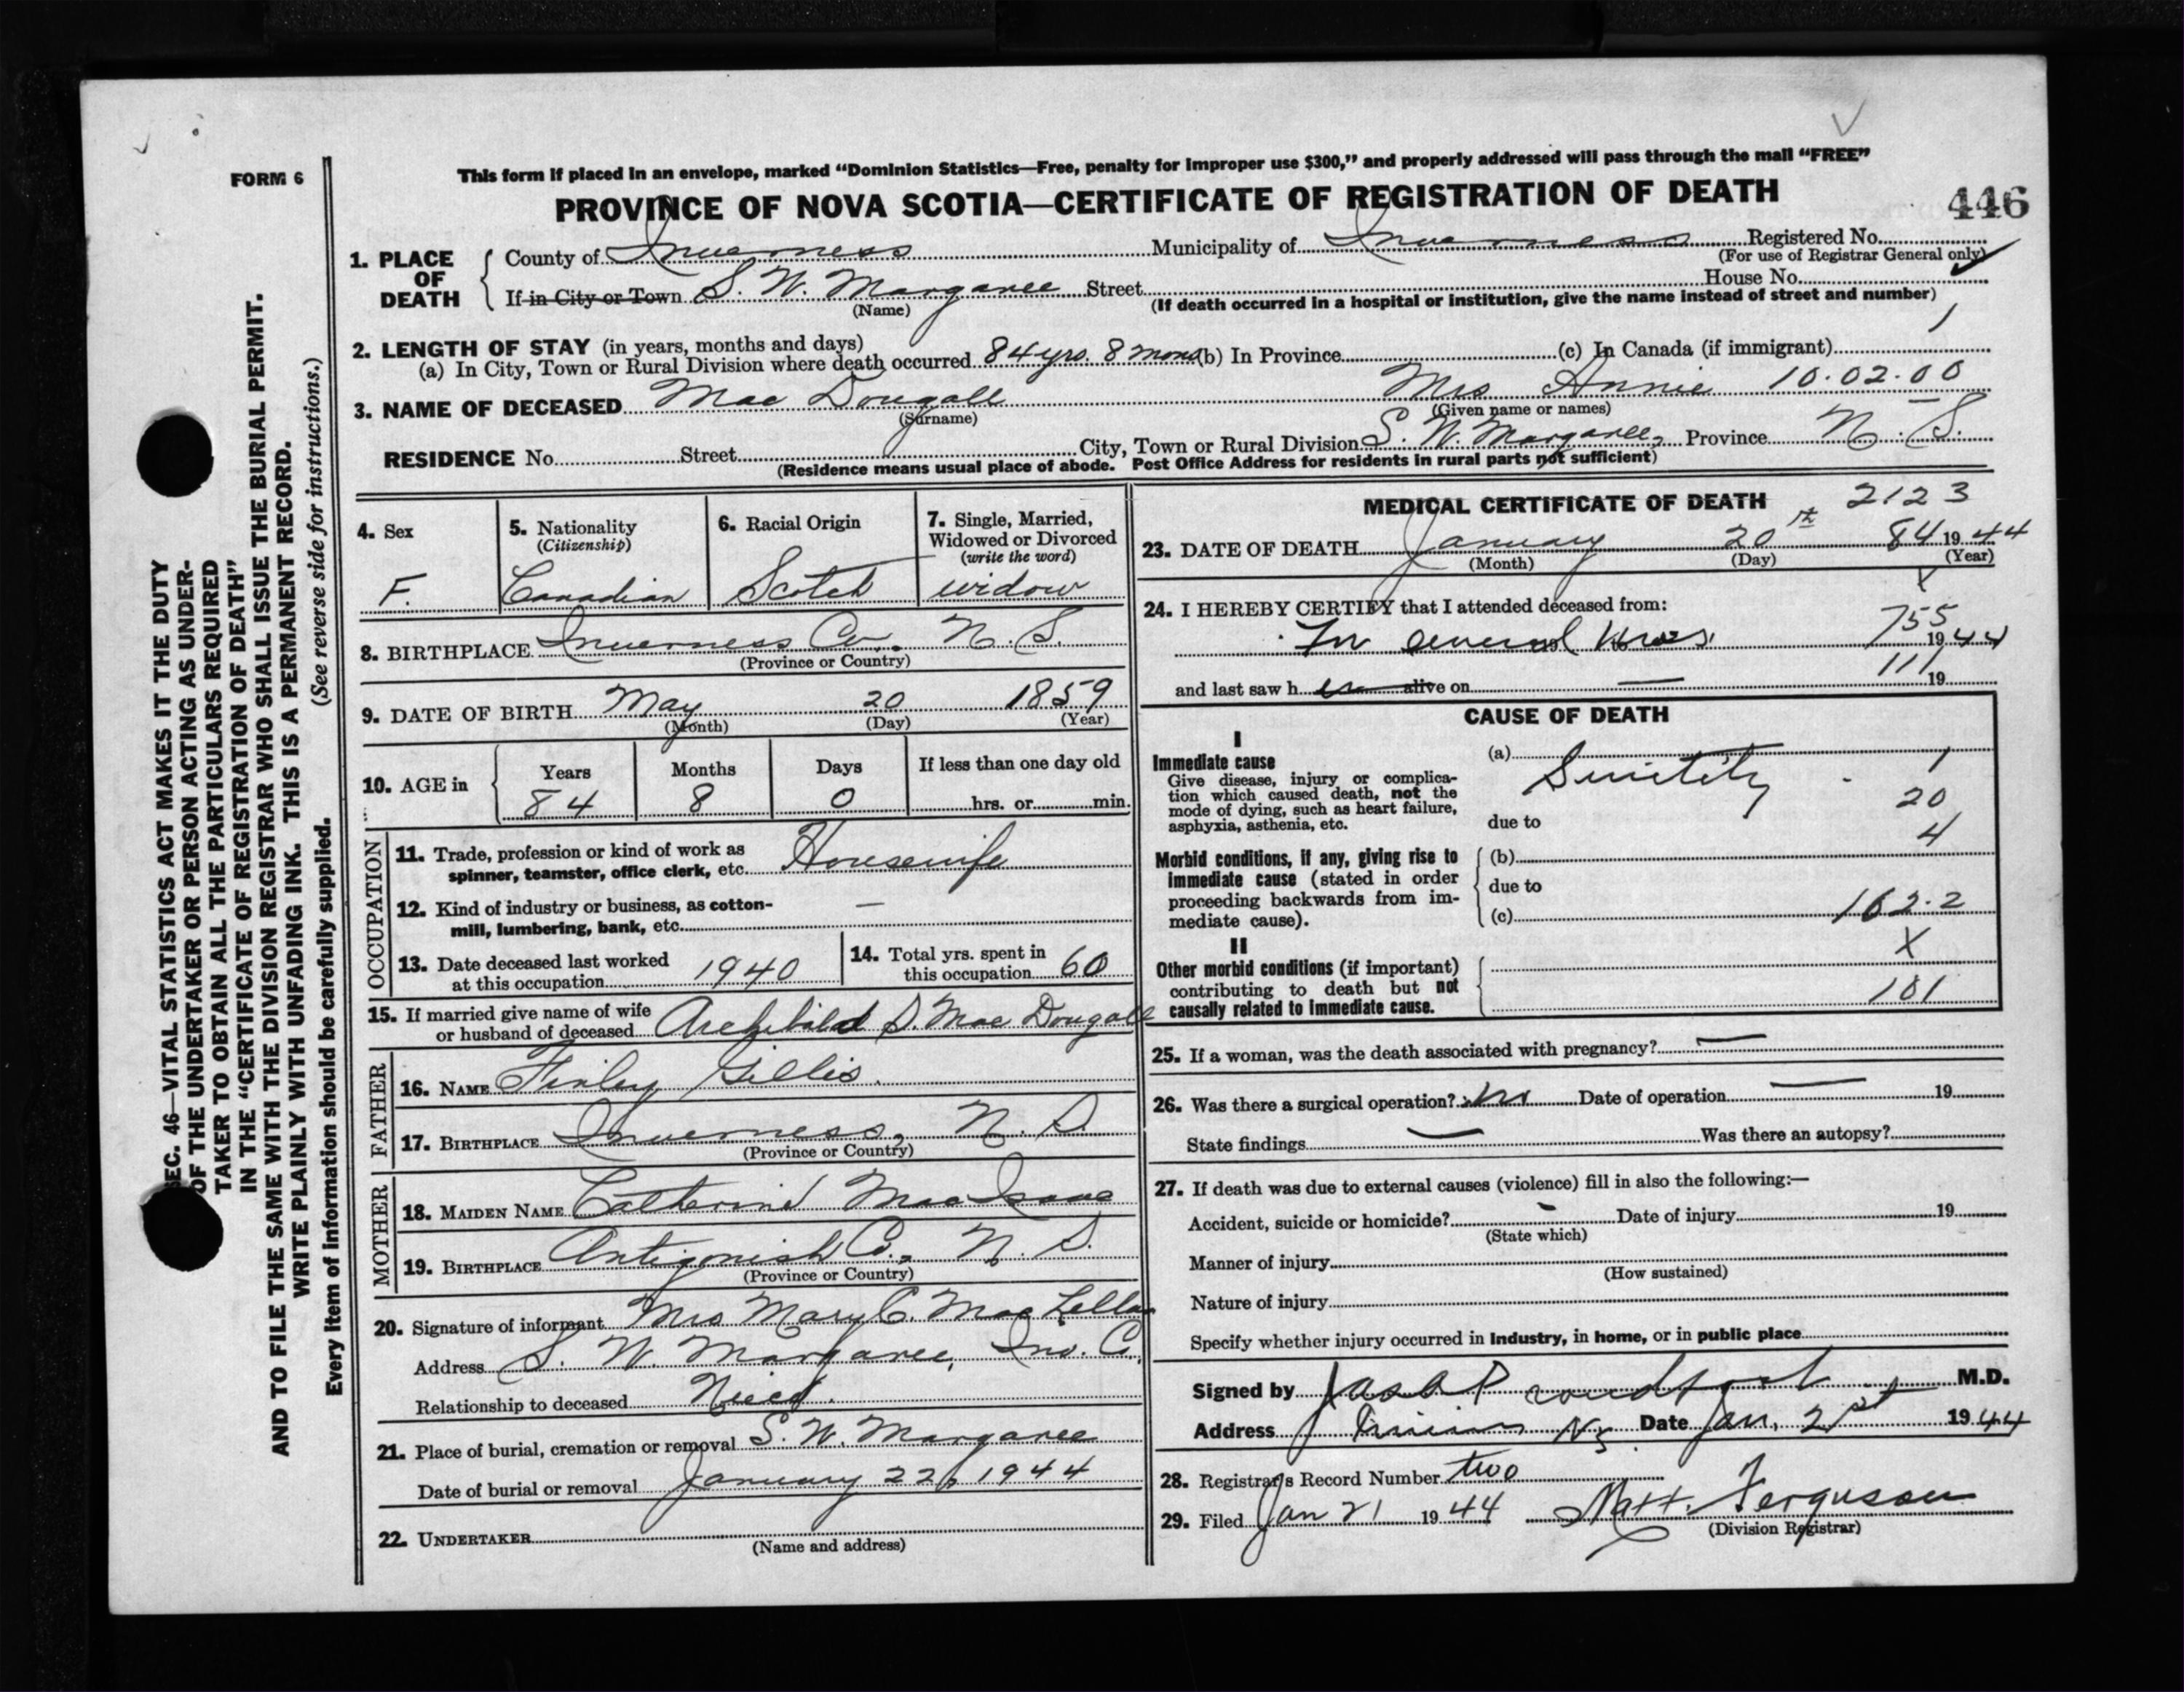 FORM 6
This form if placed in an envelope, marked “Dominion Statistics—Free, penalty for improper use $300,” and properly addressed will pass through the mail “FREE”
PROVINCE OF NOVA SCOTIA—CERTIFICATE OF REGISTRATION OF DEATH
446
1. PLACE OF DEATH
County of Inverness Municipality of Inverness Registered No.
(For use of Registrar General only)
If in City or Town S. W. Margaree Street House No.
(Name) (If death occurred in a hospital or institution, give the name instead of street and number)
2. LENGTH OF STAY (in years, months and days)
(a) In City, Town or Rural Division where death occurred 84 yrs. 8 mons (b) In Province (c) In Canada (if immigrant)
3. NAME OF DECEASED Mac Dougall Mrs Annie 10.02.00
(Surname) (Given name or names)
RESIDENCE No. Street City, Town or Rural Division S. W. Margaree, Province N. S.
(Residence means usual place of abode. Post Office Address for residents in rural parts not sufficient)
4. Sex
F.
5. Nationality
(Citizenship)
Canadian
6. Racial Origin
Scotch
7. Single, Married,
Widowed or Divorced
(write the word)
widow
8. BIRTHPLACE Inverness Co., N. S.
(Province or Country)
9. DATE OF BIRTH May 20 1859
(Month) (Day) (Year)
10. AGE in
Years Months Days If less than one day old
84 8 0 hrs. or min.
OCCUPATION
11. Trade, profession or kind of work as
spinner, teamster, office clerk, etc. Housewife
12. Kind of industry or business, as cotton-
mill, lumbering, bank, etc. —
13. Date deceased last worked
at this occupation 1940
14. Total yrs. spent in
this occupation 60
15. If married give name of wife
or husband of deceased Archibald S. Mac Dougall
FATHER
16. NAME Finlay Gillis.
17. BIRTHPLACE Inverness, N. S.
(Province or Country)
MOTHER
18. MAIDEN NAME Catherine Mac Isaac
19. BIRTHPLACE Antigonish Co., N. S.
(Province or Country)
20. Signature of informant Mrs Mary C. Mac Lellan
Address S. W. Margaree, Inv. Co.
Relationship to deceased Niece.
21. Place of burial, cremation or removal S. W. Margaree
Date of burial or removal January 22, 1944
22. UNDERTAKER
(Name and address)
MEDICAL CERTIFICATE OF DEATH 2123
23. DATE OF DEATH January 20th 84 1944
(Month) (Day) (Year)
X
24. I HEREBY CERTIFY that I attended deceased from:
755
1944
and last saw h er alive on — 19
111
CAUSE OF DEATH
I
Immediate cause
Give disease, injury or complica-
tion which caused death, not the
mode of dying, such as heart failure,
asphyxia, asthenia, etc.
(a) 1
20
due to
4
Morbid conditions, if any, giving rise to
immediate cause (stated in order
proceeding backwards from im-
mediate cause).
(b)
due to
(c) 162.2
II
X
Other morbid conditions (if important)
contributing to death but not
causally related to immediate cause.
101
25. If a woman, was the death associated with pregnancy? —
26. Was there a surgical operation? no Date of operation — 19
State findings — Was there an autopsy?
27. If death was due to external causes (violence) fill in also the following:—
Accident, suicide or homicide? - Date of injury 19
(State which)
Manner of injury
(How sustained)
Nature of injury
Specify whether injury occurred in industry, in home, or in public place
Signed by Jas A Proudfoot M.D.
Address Inverness NS Date Jan. 21st 1944
28. Registrar's Record Number two
29. Filed Jan 21 1944 Matt. Ferguson
(Division Registrar)
SEC. 46—VITAL STATISTICS ACT MAKES IT THE DUTY
OF THE UNDERTAKER OR PERSON ACTING AS UNDER-
TAKER TO OBTAIN ALL THE PARTICULARS REQUIRED
IN THE “CERTIFICATE OF REGISTRATION OF DEATH”
AND TO FILE THE SAME WITH THE DIVISION REGISTRAR WHO SHALL ISSUE THE BURIAL PERMIT.
WRITE PLAINLY WITH UNFADING INK. THIS IS A PERMANENT RECORD.
Every item of information should be carefully supplied. (See reverse side for instructions.)